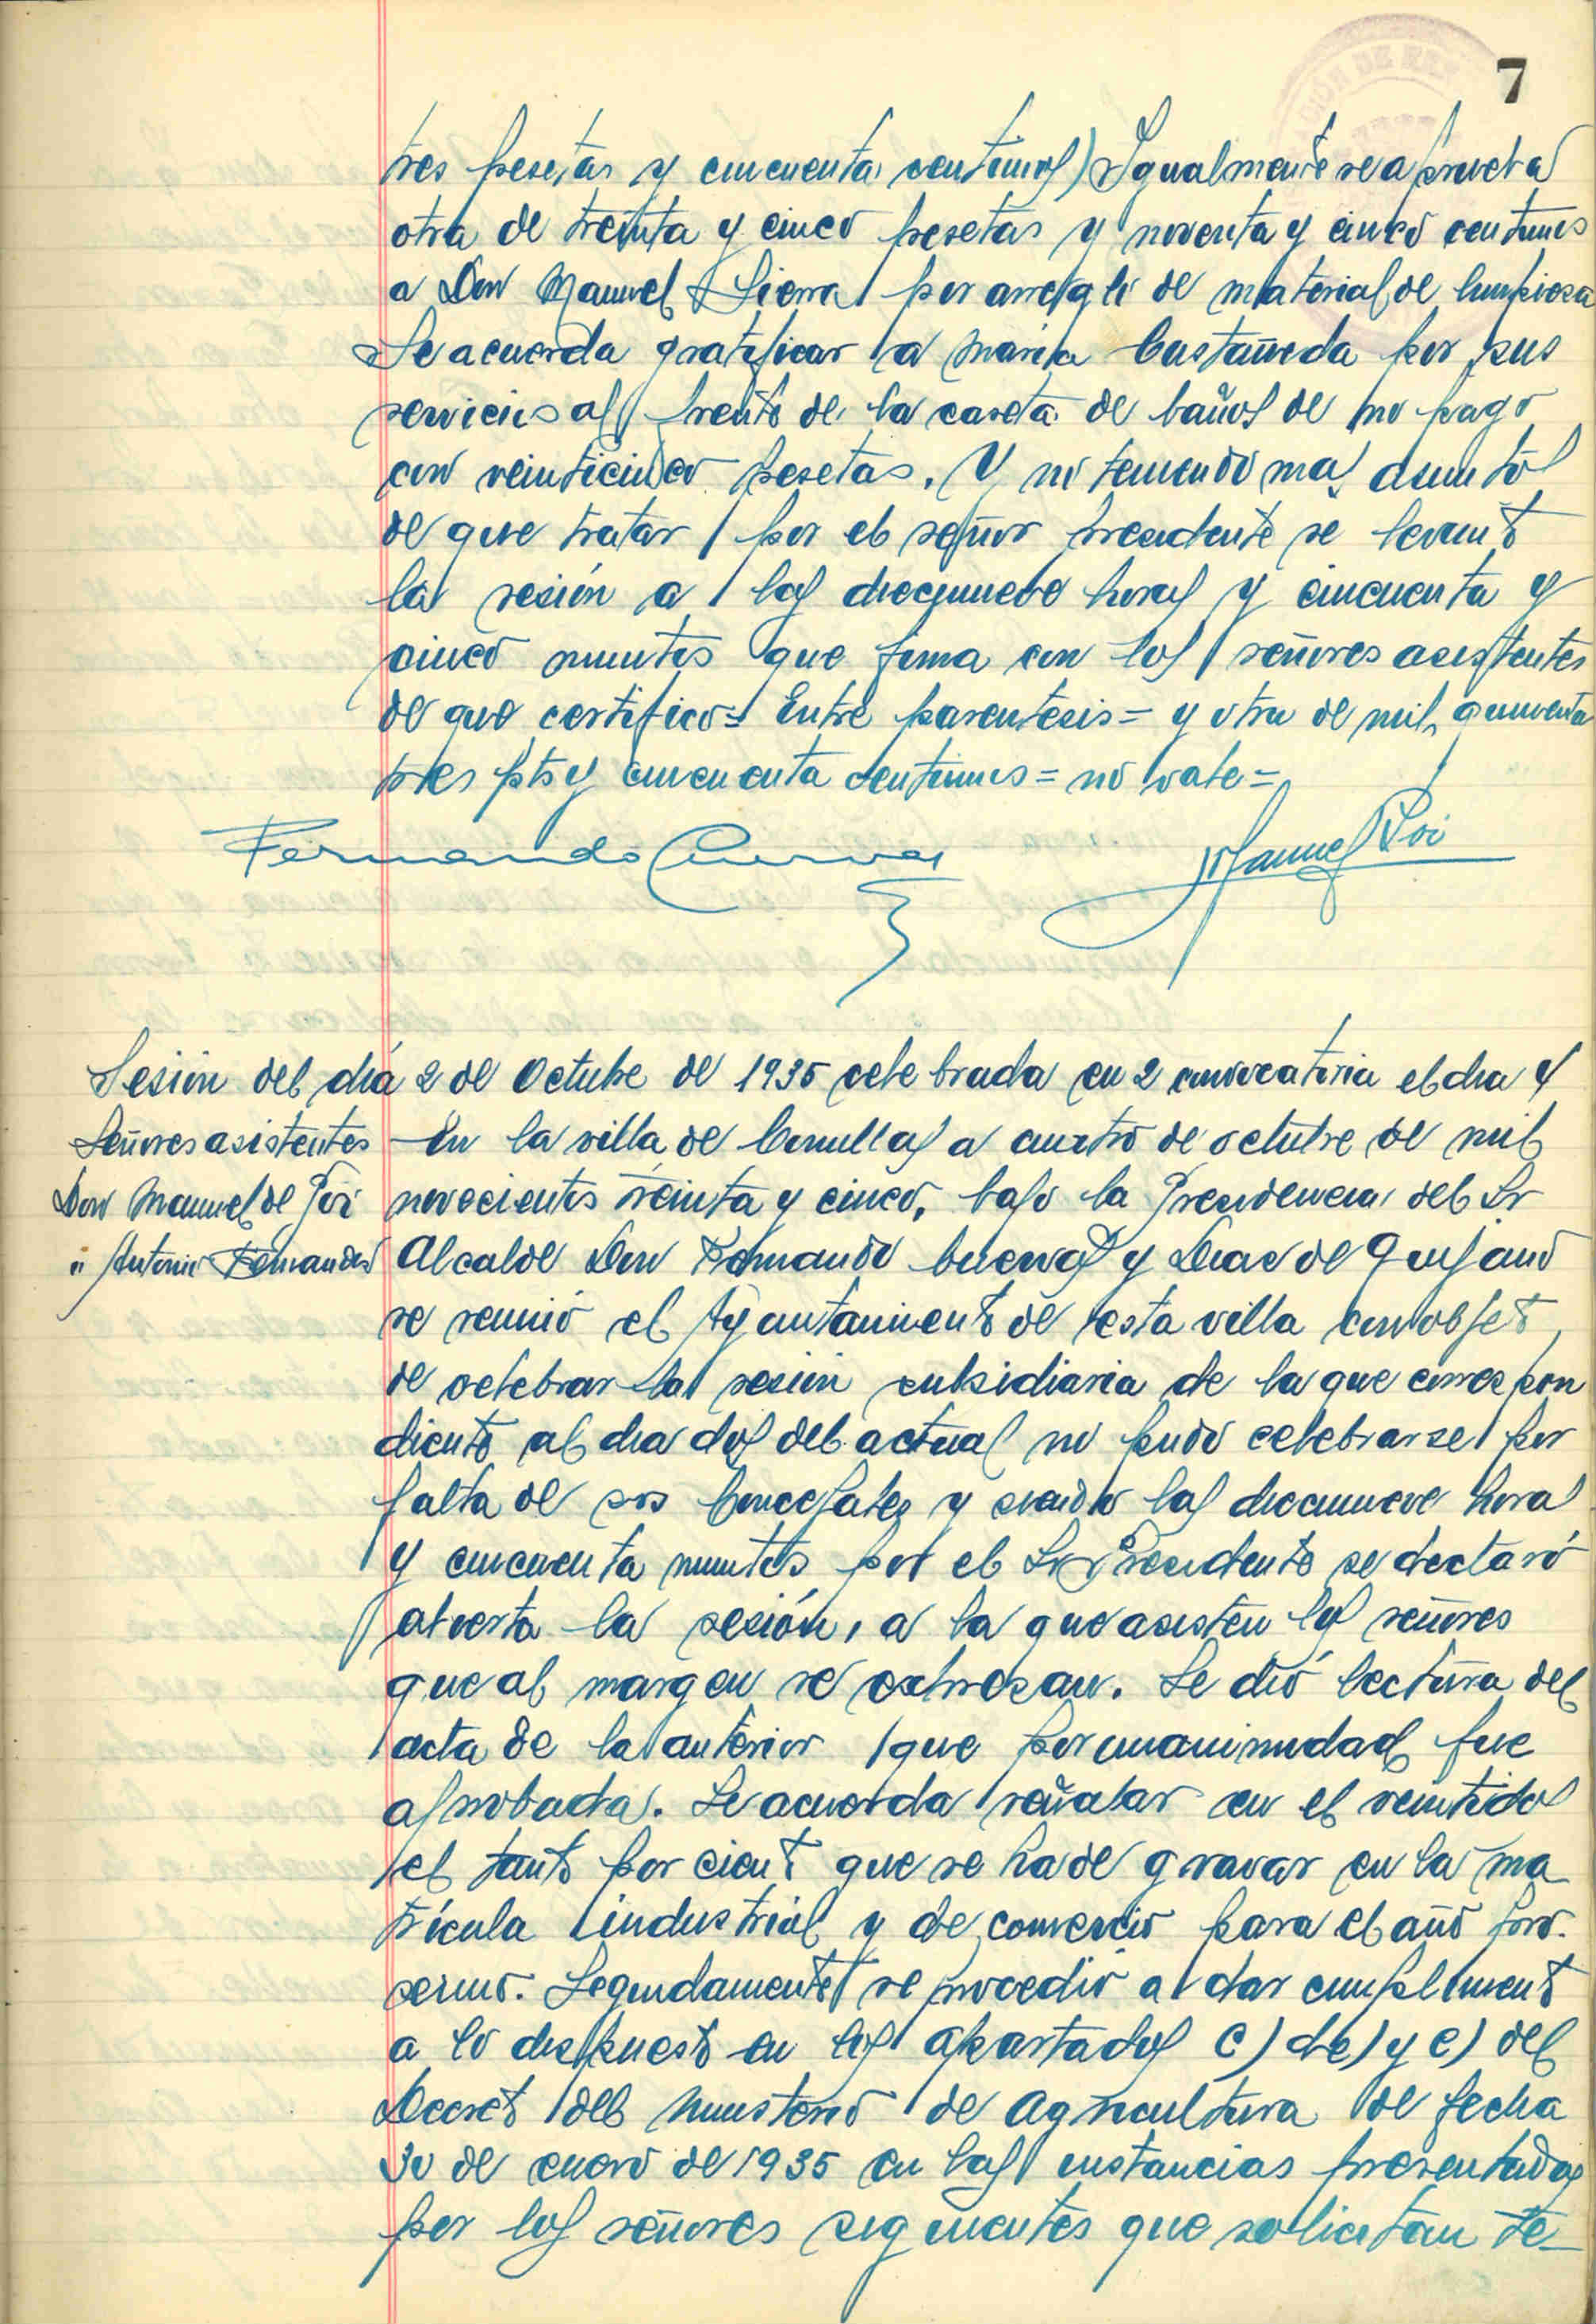 7
tres pesetas y cincuenta centimos) Igualmente se aprueba
otra de treinta y cinco pesetas y noventa y cinco centimos
a Don Manuel Sierra por arreglo de material de limpieza
Se acuerda gratificar a Maria Castañeda por sus
servicios al frente de la caseta de baños de no pago
con veinticinco pesetas. Y no teniendo mas asuntos
de que tratar por el señor presidente se levantó
la sesión a las diecinueve horas y cincuenta y
cinco minutos que firma con los señores asistentes
de que certifico = Entre parentesis = y otra de mil
tres pts y cincuenta centimos = no vale =
Fernando Cuevas
Manuel Poi
Sesión del dia 2 de Octubre de 1935 celebrada en 2 convocatoria el dia 4
Señores asistentes
Don Manuel de Poi
" Antonio Fernandez
En la villa de Comillas a cuatro de octubre de mil
novecientos treinta y cinco, bajo la Presidencia del Sr
Alcalde Don Fernando Cuevas y Diaz de Quijano
se reunió el Ayuntamiento de esta villa con objeto
de celebrar la sesión subsidiaria de la que correspon
diente al dia dos del actual no pudo celebrarse por
falta de sres Concejales y siendo las diecinueve horas
y cincuenta minutos por el Sr Presidente se declaró
abierta la sesión, a la que asisten los señores
que al margen se expresan. Se dió lectura del
acta de la anterior que por unanimidad fue
aprobada. Se acuerda señalar en el veintidos
el tanto por ciento que se ha de gravar en la ma
trícula industrial y de comercio para el año pro-
ximo. Seguidamente se procedió a dar cumplimento
a lo dispuesto en los apartados c) de) y e) del
Decreto del Ministerio de Agricultura de fecha
30 de enero de 1935 en las instancias presentadas
por los señores siguientes que solicitan te-